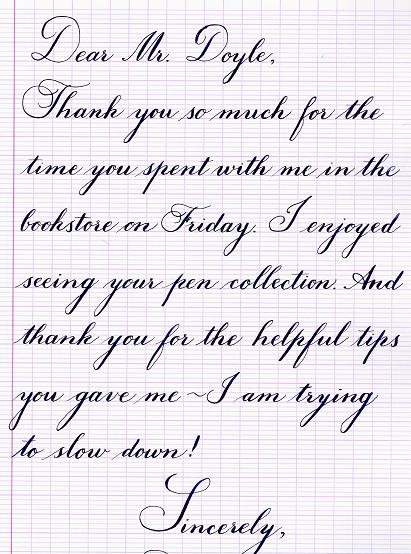 Dear Mr. Doyle,
Thank you so much for the
time you spent with me in the
bookstore on Friday. I enjoyed
seeing your pen collection. And
thank you for the helpful tips
you gave me ~ I am trying
to slow down!
Sincerely,